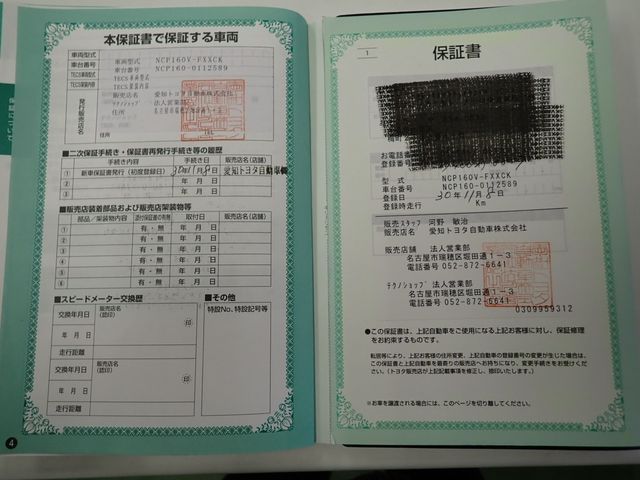 本保証書で保証する車両
車両型式 車両型式 NCP160V-FXXCK
車台番号 車台番号 NCP160-0112589
TECS車両型式 TECS車両型式
TECS架装内容 TECS架装内容
発行販売店名
販売店名 愛知トヨタ自動車株式会社
テクノショップ 法人営業部
住所 名古屋市瑞穂区堀田通5-
住所
■二次保証手続き・保証書再発行手続き等の履歴
手続き内容 手続き日 販売店名(店舗)
① 新車保証書発行(初度登録日) 30年11月8日 愛知トヨタ自動車㈱
② 年 月 日
③ 年 月 日
■販売店装着部品および販売店架装物等
部品/架装物内容 添付保証書の有無 取付日 販売店名(店舗)
① 有・無 年 月 日
② 有・無 年 月 日
③ 有・無 年 月 日
④ 有・無 年 月 日
⑤ 有・無 年 月 日
⑥ 有・無 年 月 日
■スピードメーター交換歴
交換年月日 販売店名(認印)
年 月 日 印
走行距離
交換年月日 販売店名(認印)
年 月 日 印
走行距離
■その他
特設No. 特設記号等
4
1
保証書
お電話番号
登録番号
型 式 NCP160V-FXXCK
車台番号 NCP160-0112589
登録日 30年11月8日
登録時走行 Km
販売スタッフ 河野 敏治
販売店名 愛知トヨタ自動車株式会社
販売店舗 法人営業部
名古屋市瑞穂区堀田通1-3
電話番号 052-872-6641
テクノショップ 法人営業部
名古屋市瑞穂区堀田通1-3
電話番号 052-872-6641
0309959312
●この保証書は、上記自動車をご使用になる上記お客様に対し、保証修理
をお約束するものです。
転居等により、上記お客様の住所変更、上記自動車の登録番号の変更が生じた場合は、
この保証書と上記自動車を最寄りの販売店へお持ちになり、変更手続きをお受けくだ
さい。(トヨタ販売店が上記記載事項を修正し、捺印いたします。)
※お車を譲渡される場合には、このページを切り離してください。